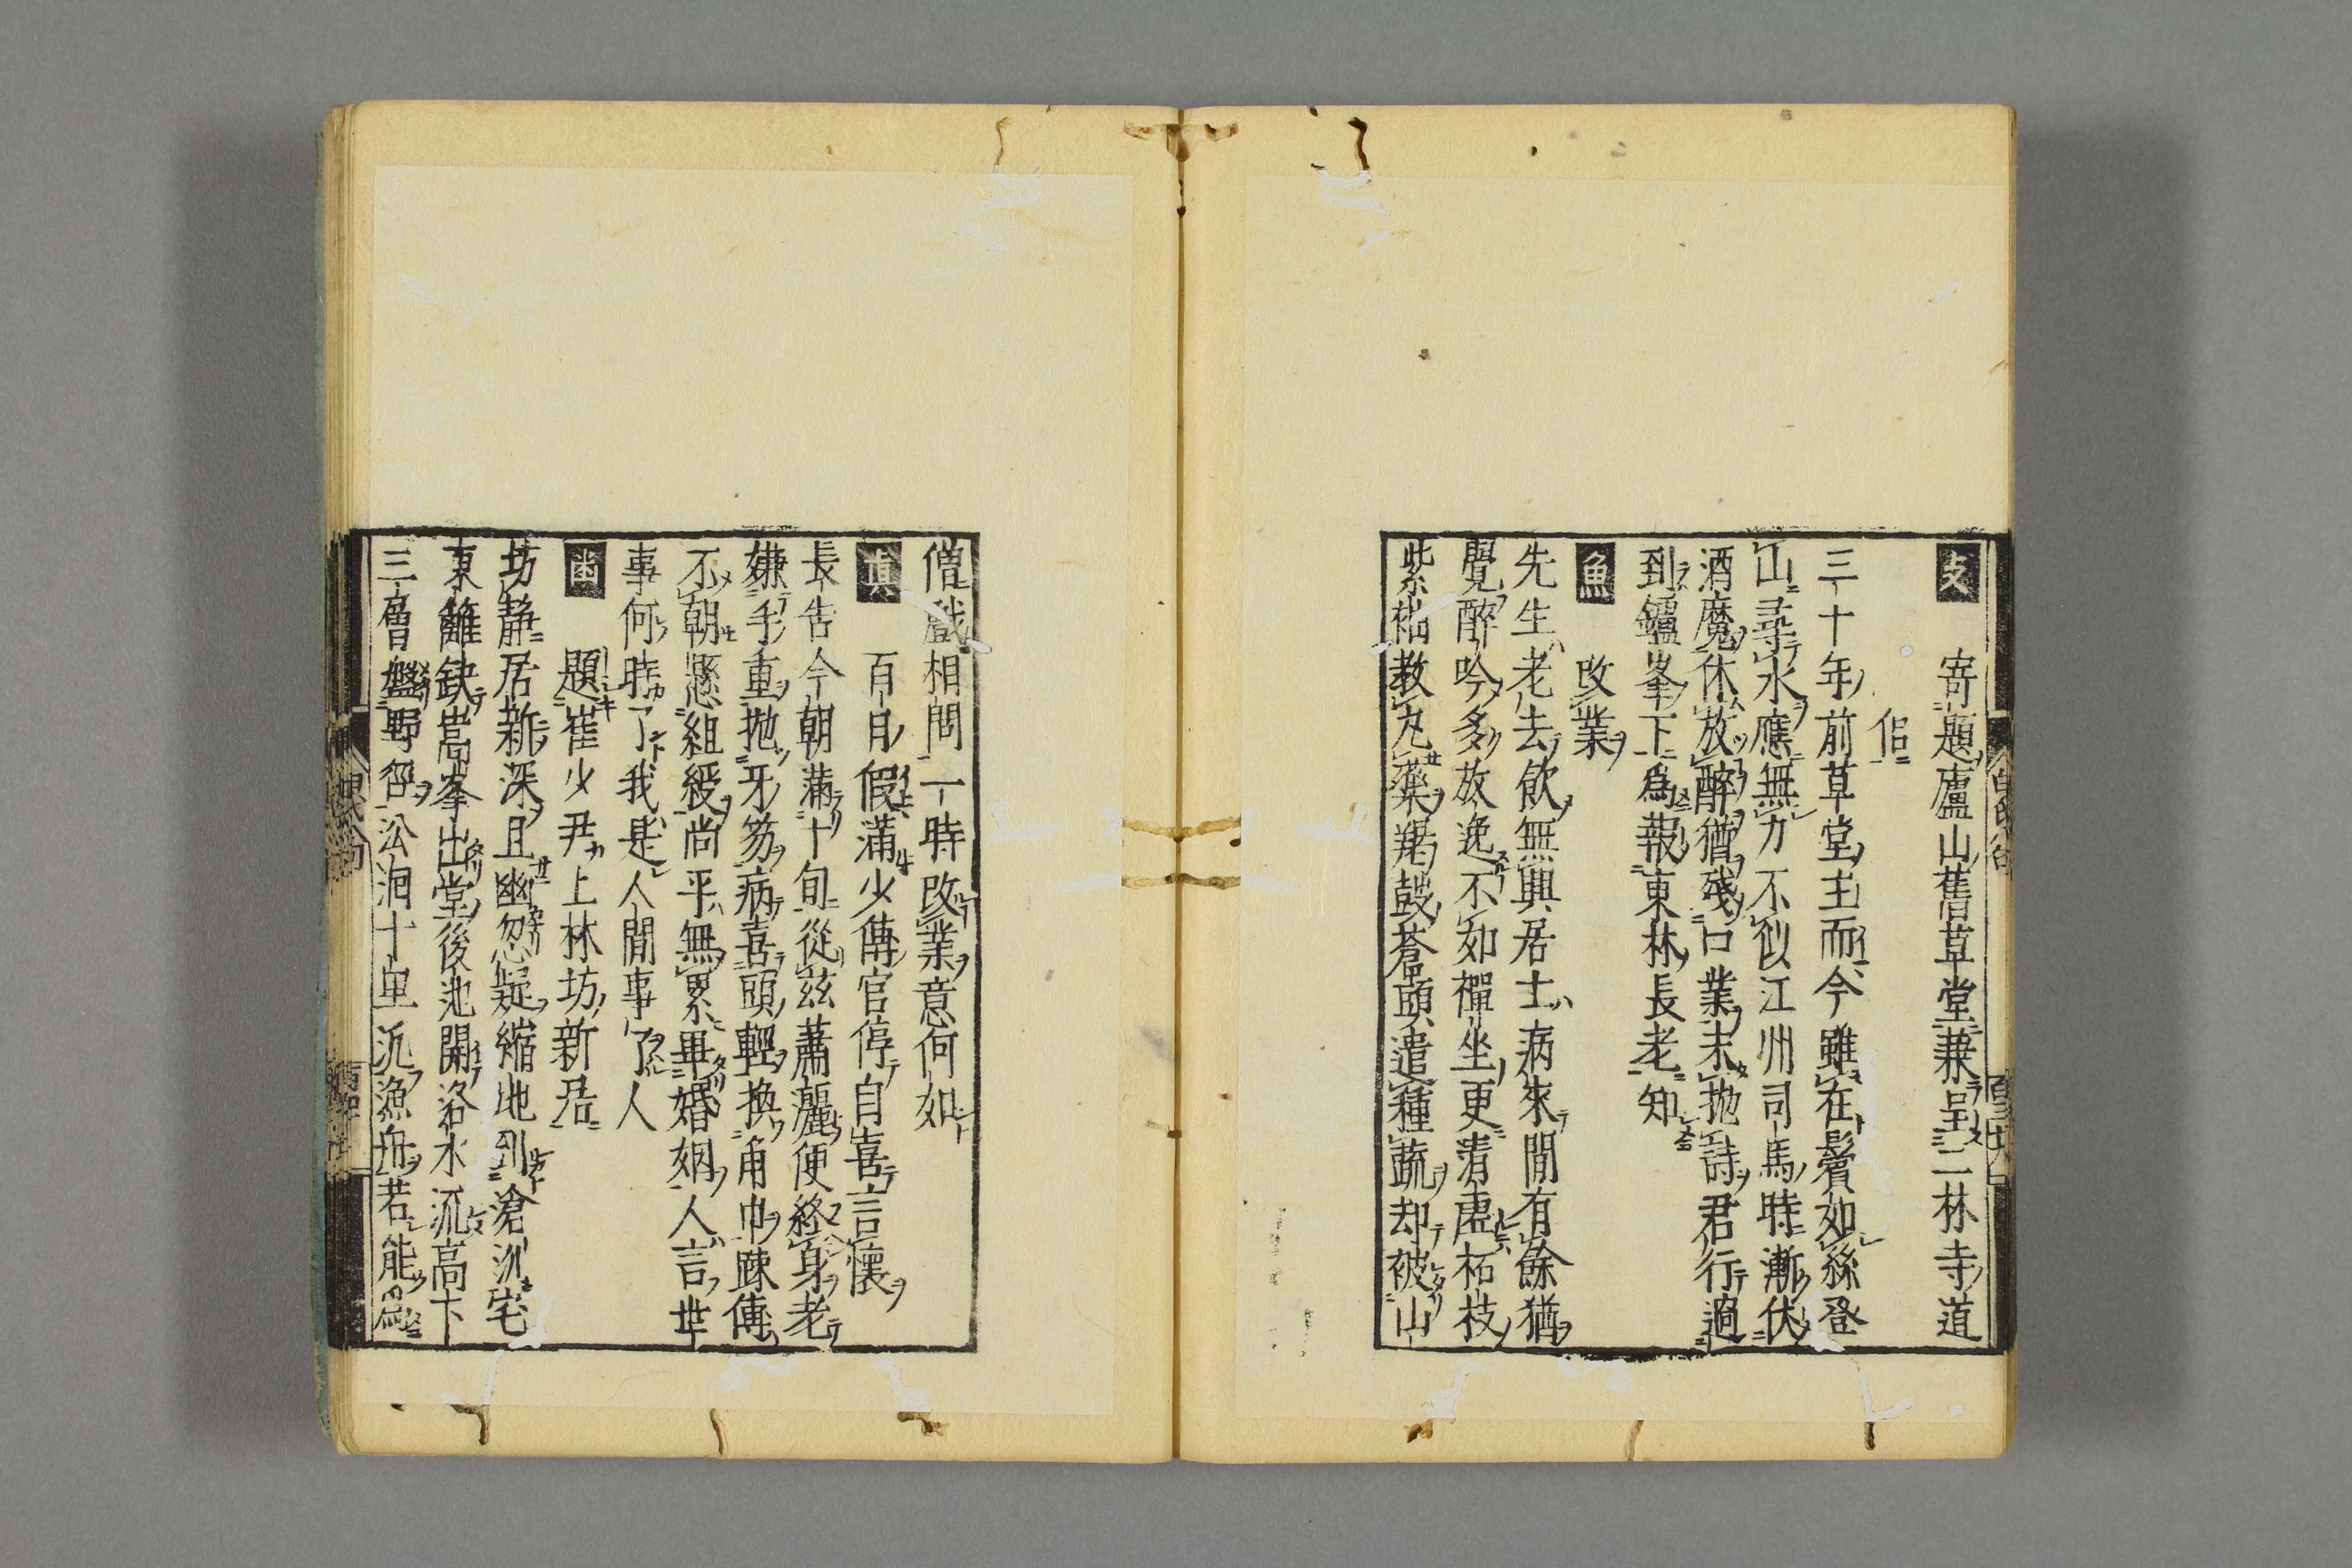 支 寄題廬山舊草堂兼呈二林寺道
侶
三十年前草堂主而今雖在鬢如絲登
山尋水應無力不似江州司馬時漸伏
酒魔休放醉猶殘口業未抛詩君行過
到鑪峯下為報東林長老知
魚 改業
先生老去飲無興居士病來閒有餘猶
覺醉吟多放逸不如禪坐更清虛柘枝
紫袖教丸藥羯鼓蒼頭遣種蔬却被山
僧戲相問一時改業意何如
眞 百日假滿少傅官停自喜言懷
長告今朝滿十旬從茲蕭灑便終身老
嫌手重抛牙笏病喜頭輕換角巾踈傅
不朝懸組綬尚平無累畢婚姻人言世
事何時了我是人閒事了人
題崔少尹上林坊新居
坊静居新深且幽忽疑縮地到滄洲宅
東籬缺嵩峯出堂後池開洛水流高下
三層盤野徑沿洄十里汎漁舟若能為